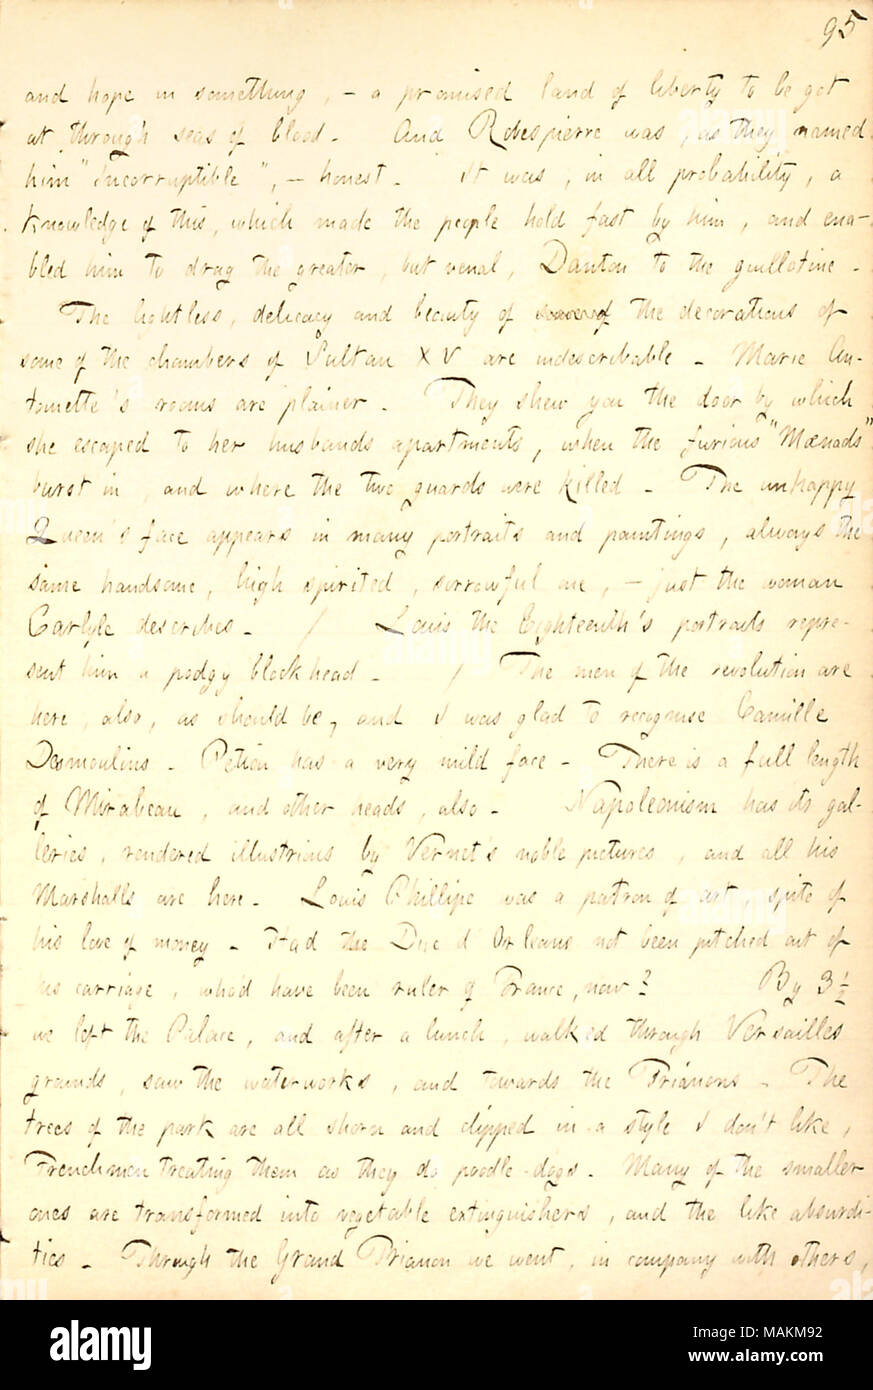 95
and hope in something, - a promised land of liberty to be got
at through seas of blood. And Robespierre was, as they named
him "Incorruptible", - honest. It was, in all probability, a
knowledge of this, which made the people hold fast by him, and ena-
bled him to drag the greater, but venal, Danton to the guillotine.
The lightless, delicacy and beauty of the decorations of
some of the chambers of Sultan XV are indescribable. Marie An-
tionette's rooms are plainer. They shew you the door by which
she escaped to her husbands apartments, when the furious "Mænads"
burst in, and where the two guards were killed. The unhappy
Queen's face appears in many portraits and paintings, always the
same handsome, high spirited, sorrowful one, - just the woman
Carlyle describes. / Louis the Eighteenth's portraits repre-
sent him a podgy blockhead. / The men of the revolution are
here, also, as should be, and I was glad to recognise Camille
Desmoulins. Petion has a very mild face. There is a full length
of Mirabeau, and other heads, also. Napoleonism has its gal-
leries, rendered illustrious by Vernet's noble pictures, and all his
Marshalls are here. Louis Phillipe was a patron of art, spite of
his love of money. Had the Duc d'Orleans not been pitched out of
his carriage, who'd have been ruler of France, now? By 3 1/2
we left the Palace, and after a lunch, walked through Versailles
grounds, saw the waterworks, and towards the Trianons. The
trees of the park are all shorn and clipped in a style I don't like,
Frenchmen treating them as they do poodle-dogs. Many of the smaller
ones are transformed into vegetable extinguishers, and the like absurdi-
ties. Through the Grand Trianon we went, in company with others,
alamy
Image ID: MAKM92
www.alamy.com